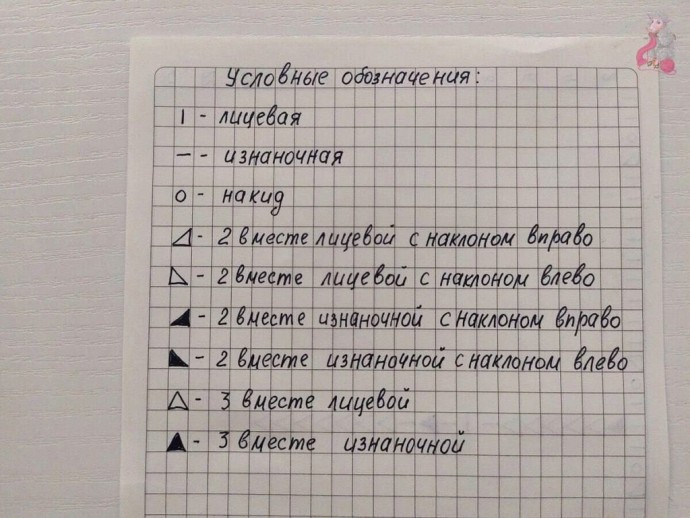 Условные обозначения:
| - лицевая
— - изнаночная
О - накид
◿ - 2 вместе лицевой с наклоном вправо
◺ - 2 вместе лицевой с наклоном влево
◢ - 2 вместе изнаночной с наклоном вправо
◣ - 2 вместе изнаночной с наклоном влево
△ - 3 вместе лицевой
▲ - 3 вместе изнаночной